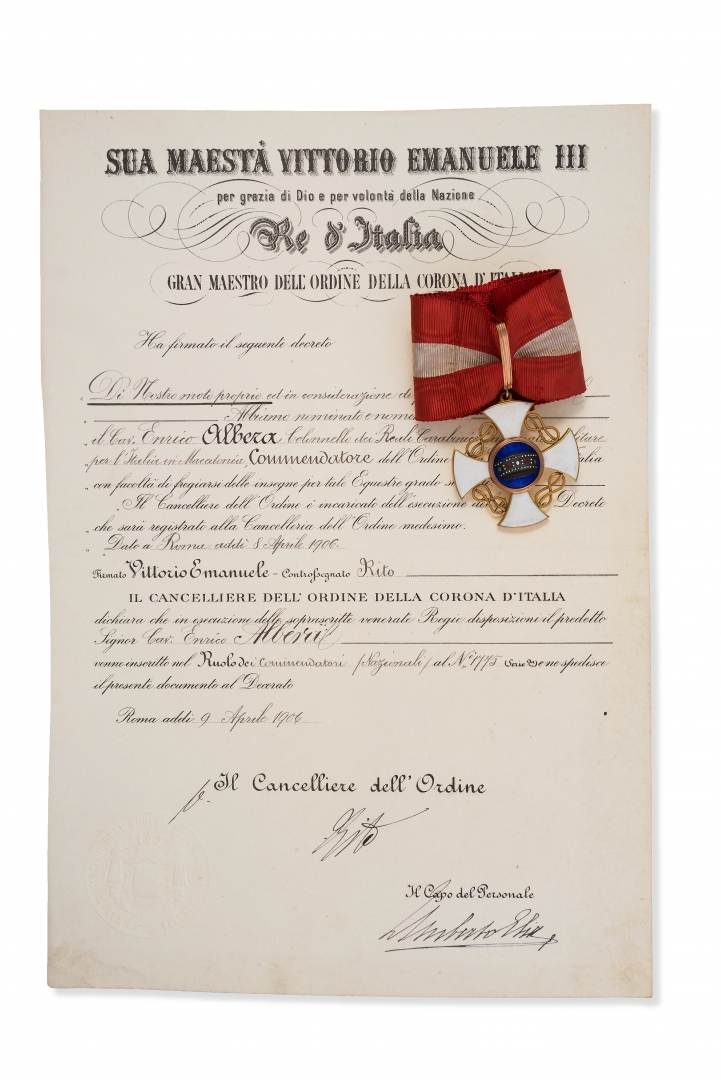 SUA MAESTÀ VITTORIO EMANUELE III
per grazia di Dio e per volontà della Nazione
Re d'Italia
GRAN MAESTRO DELL'ORDINE DELLA CORONA D'ITAL
Ha firmato il seguente decreto
Di Nostro moto proprio ed in considerazione di
Abbiamo nominato e nomin
il Cav. Enrico Albera Colonnello dei Reali Carabinie
per l'Italia in Macedonia, Commendatore dell'Ordine talia
con facoltà di fregiarsi delle insegne per tale Equestre grado s
Il Cancelliere dell'Ordine è incaricato dell'esecuzione de Decreto
che sarà registrato alla Cancelleria dell'Ordine medesimo.
Dato a Roma addì 8 Aprile 1906
Firmato Vittorio Emanuele - Controssegnato Rito
IL CANCELLIERE DELL'ORDINE DELLA CORONA D'ITALIA
dichiara che in esecuzione delle soprascritte venerate Regie disposizioni il predetto
Signor Cav. Enrico Albera
venne inscritto nel Ruolo dei Commendatori (Nazionali) al N.° 1775 (Serie 2a) e ne spedisce
il presente documento al Decorato
Roma addì 9 Aprile 1906
p. Il Cancelliere dell'Ordine
Rito
Il Capo del Personale